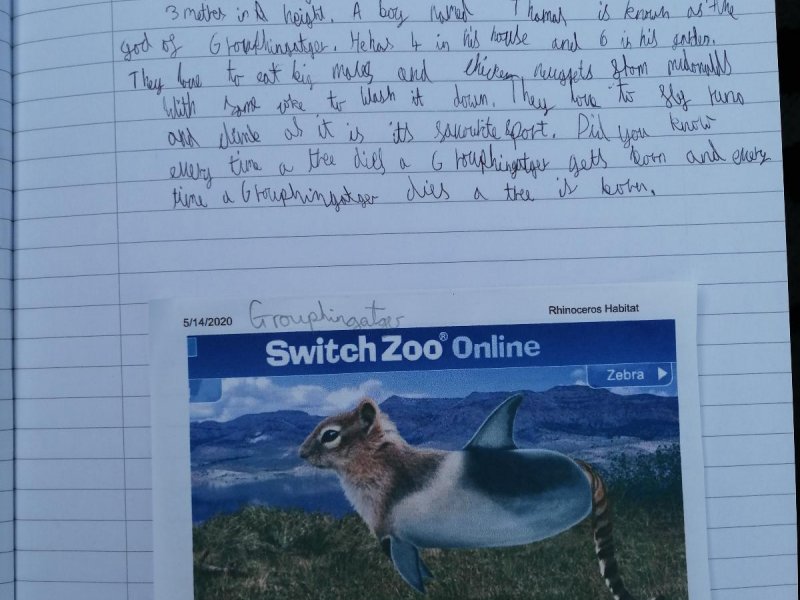 3 metres in height. A boy named Thomas is known as the
god of Grouphingatger. He has 4 in his house and 6 in his garden.
They love to eat big macs and chicken nuggets from mcdonalds
With some coke to wash it down. They love to fly runs
and climb as it is its favourite sport. Did you know
every time a tree dies a Grouphingatger gets born and every
time a Grouphingatger dies a tree is born.
5/14/2020 Grouphingatger Rhinoceros Habitat
Switch Zoo® Online
Zebra